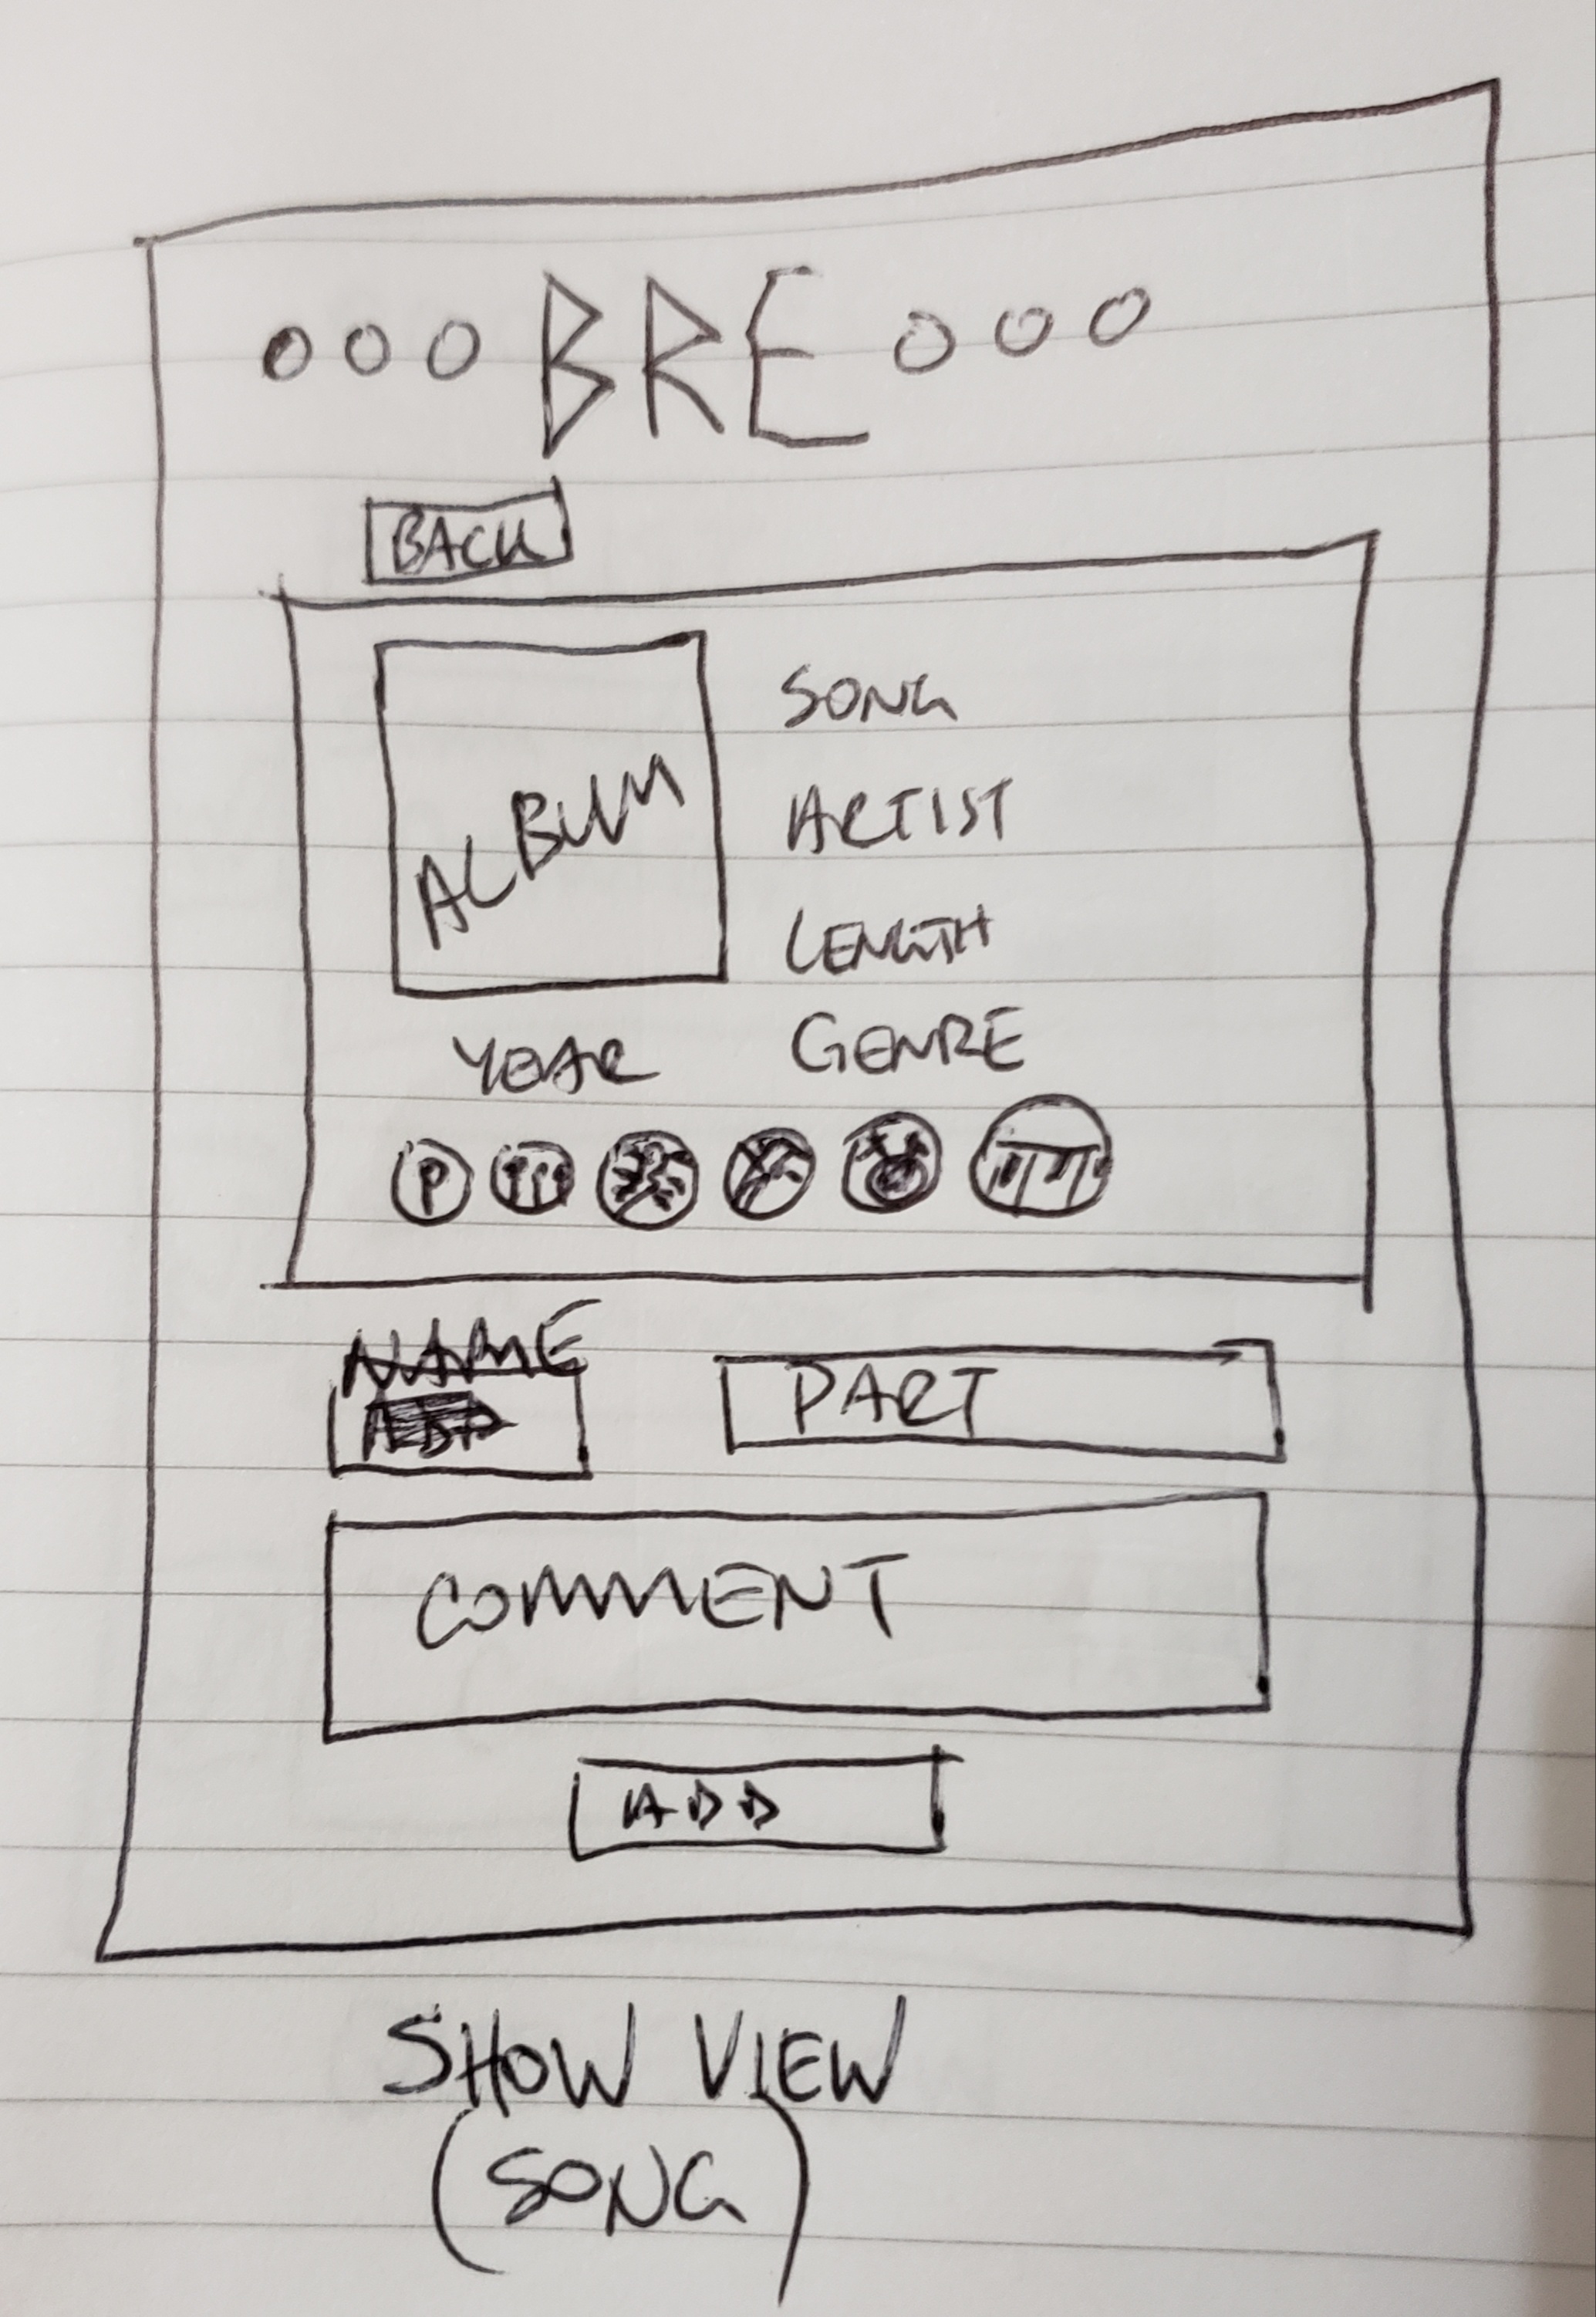 BRE
BACK
ALBUM
SONG
ARTIST
LENGTH
YEAR GENRE
P
NAME PART
COMMENT
ADD
SHOW VIEW
(SONG)